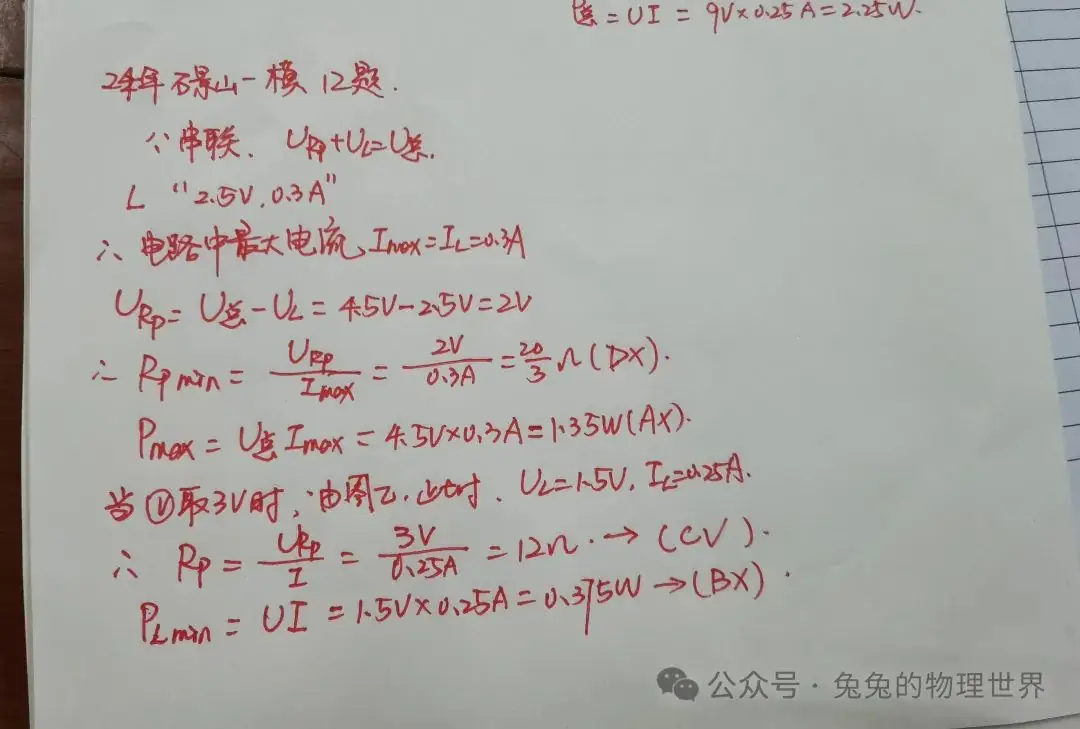 P总=UI=9V×0.25A=2.25W.
24年石景山一模12题.
∵串联. URp+UL=U总.
L "2.5V, 0.3A"
∴电路中最大电流Imax=IL=0.3A
URp=U总-UL=4.5V-2.5V=2V
∴Rpmin=URp/Imax=2V/0.3A=20/3Ω(D×).
Pmax=U总Imax=4.5V×0.3A=1.35W(A×).
当Ⓥ取3V时,由图乙.此时.UL=1.5V, IL=0.25A.
∴Rp=URp/I=3V/0.25A=12Ω.→(C√).
PLmin=UI=1.5V×0.25A=0.375W→(B×).
公众号·兔兔的物理世界